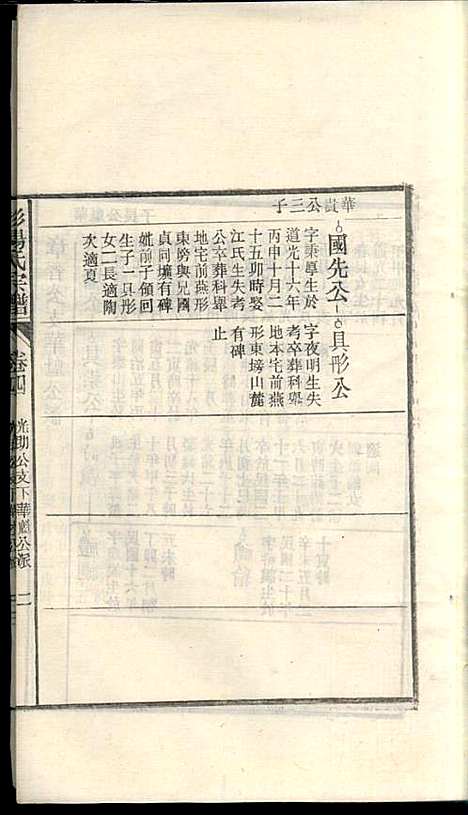 華貴公三子
國先公
字秉學生於
道光十六年
丙申十月二
十五卯時娶
江氏生失考
公卒葬科舉
地宅前燕形
東塝與兄國
貞同壙有碑
妣前子領回
生子一具形
女二長適陶
次適夏
具形公
字夜明生失
考卒葬科舉
地本宅前燕
形東塝山麓
有碑
止
楊氏宗譜
卷四
光助公支下華貴公派
二